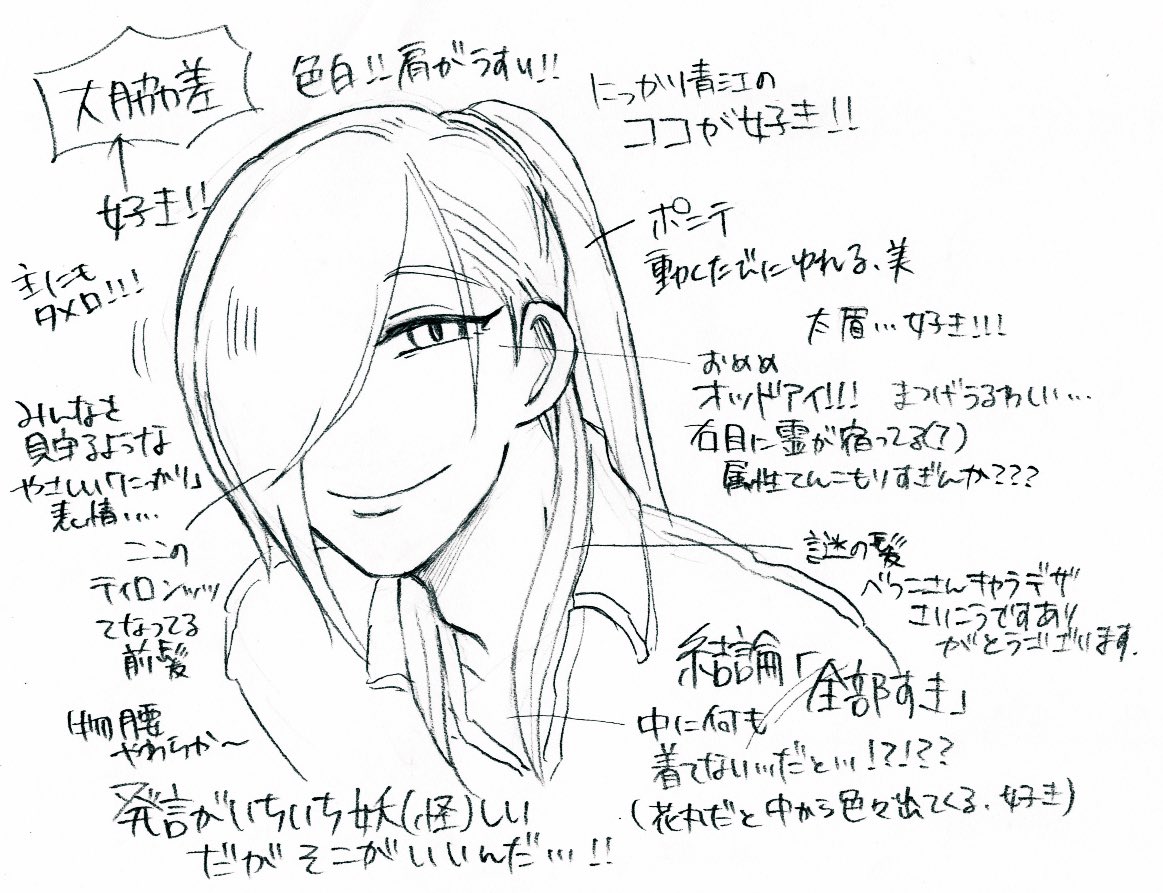 大脇差
好き!!
色白!!肩がうすい!!
にっかり青江の
ココが好き!!
ポニテ
動くたびにゆれる、美
主にも
タメ口!!!
太眉…好き!!!
おめめ
オッドアイ!!! まつげうるわしい…
右目に霊が宿ってる(?)
属性てんこもりすぎんか???
みんなを
見守るような
やさしい「にっかり」
表情‥‥
ここの
ティロンッッ
てなってる
前髪
謎の髪
べっこさんキャラデザ
さいこうですあり
がとうございます.
結論「全部すき」
物腰
やわらか〜
中に何も
着てない…だと…!?!??
(花丸だと中から色々出てくる、好き)
発言がいちいち妖(怪)しい
だがそこがいいんだ…!!